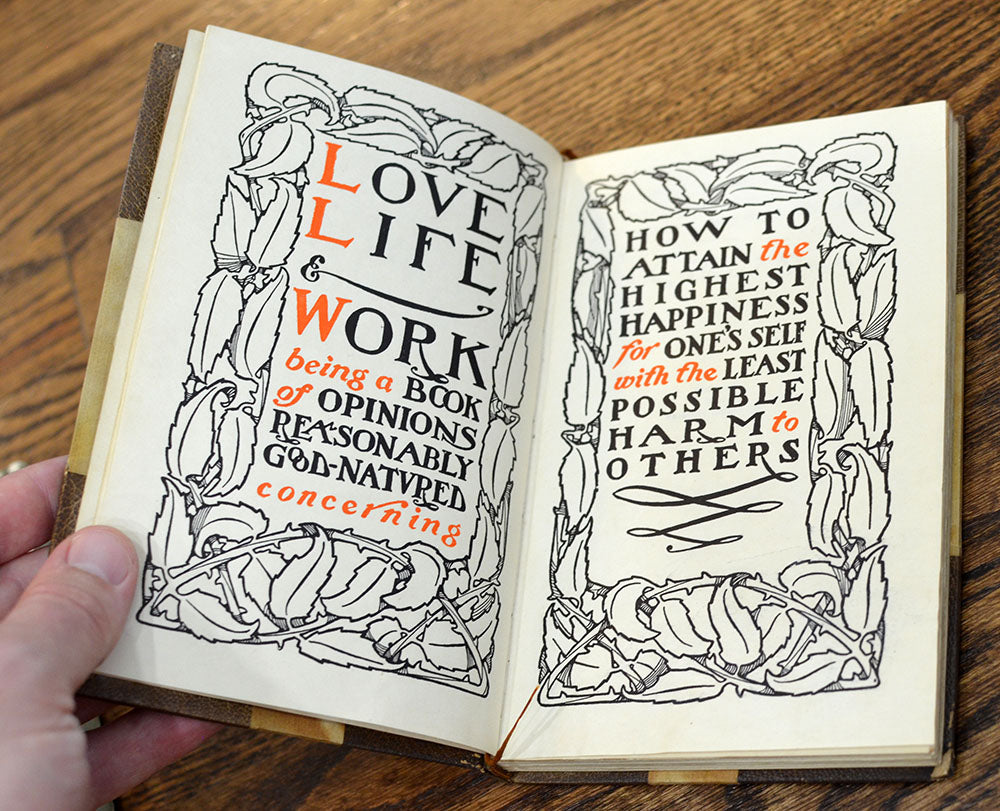 LOVE
LIFE
&
WORK
being a BOOK
of OPINIONS
REASONABLY
GOOD-NATVRED
concerning
HOW TO
ATTAIN the
HIGHEST
HAPPINESS
for ONE'S SELF
with the LEAST
POSSIBLE
HARM to
OTHERS